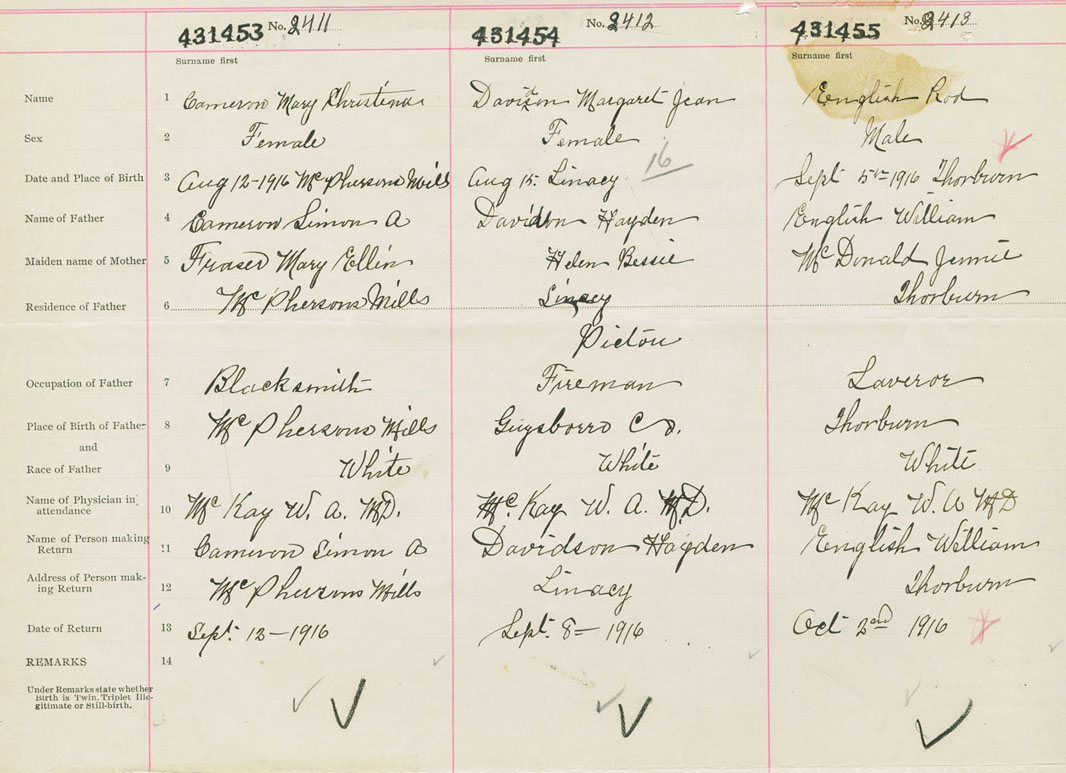 431453 No. 2411 431454 No. 2412 431455 No. 2413
Surname first Surname first Surname first
Name 1 Cameron Mary Christena Davidson Margaret Jean English Rod
Sex 2 Female Female Male
16
Date and Place of Birth 3 Aug 12-1916 McPhersons Mills Aug 15. Linacy Sept 5th 1916 Thorburn
Name of Father 4 Cameron Simon A Davidson Hayden English William
Maiden name of Mother 5 Fraser Mary Ellin Helen Bessie McDonald Jennie
Residence of Father 6 McPhersons Mills Linacy Thorburn
Pictou
Occupation of Father 7 Blacksmith Fireman Laveror
Place of Birth of Father 8 McPhersons Mills Guysborro Co. Thorburn
and
Race of Father 9 White White White
Name of Physician in attendance 10 McKay W. A. MD. McKay W. A. M.D. McKay W. A MD
Name of Person making Return 11 Cameron Simon A Davidson Hayden English William
Address of Person making Return 12 McPhersons Mills Linacy Thorburn
Date of Return 13 Sept. 12-1916 Sept. 8-1916 Oct 2nd 1916
REMARKS 14
Under Remarks state whether
Birth is Twin, Triplet Ille-
gitimate or Still-birth.